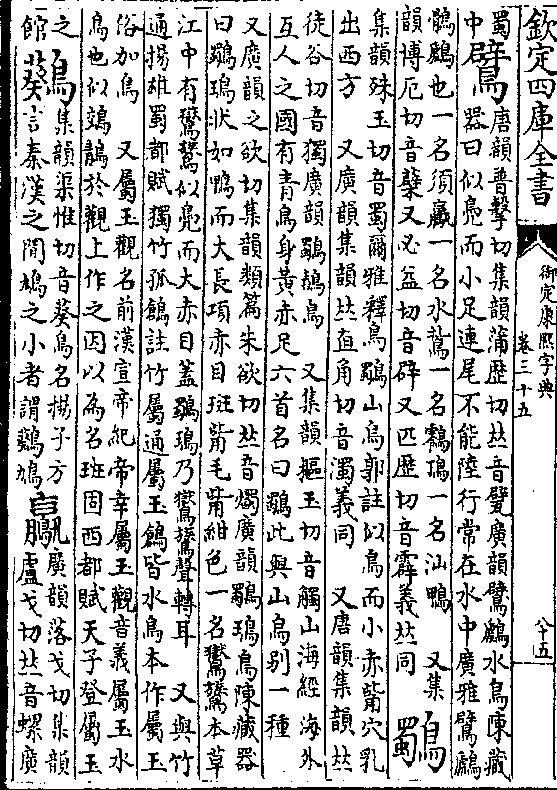 欽定四庫全書
御定康熙字典
卷三十五
八十五
蜀
中
鷿
唐韻普擊切集韻蒲歷切𠀤音甓廣韻鷿鷉水鳥陳藏
器曰似鳧而小足連尾不能陸行常在水中廣雅鷿鷉
鶻鷉也一名須鸁一名水鶩一名鸐鳿一名汕鴨　又集
韻博厄切音糵又必益切音辟又匹歷切音霹義𠀤同
鸀
集韻殊玉切音蜀爾雅釋鳥鸀山烏郭註似烏而小赤觜穴乳
出西方　又廣韻集韻𠀤直角切音濁義同　又唐韻集韻𠀤
徒谷切音獨廣韻鸀鵚鳥　又集韻樞玉切音觸山海經海外
互人之國有青鳥身黃赤足六首名曰鸀此與山烏別一種
又廣韻之欲切集韻類篇朱欲切𠀤音燭廣韻鸀鳿鳥陳藏器
曰鸀鳿狀如鴨而大長項赤目斑觜毛觜紺色一名鸑鷟本草
江中有鸑鷟似鳧而大赤目蓋鸀鳿乃鸑鷟聲轉耳　又與竹
通揚雄蜀都賦獨竹孤鶬註竹屬通屬玉鶬皆水鳥本作屬玉
俗加鳥　又屬玉觀名前漢宣帝紀帝幸屬玉觀音義屬玉水
鳥也似鵁鶄於觀上作之因以為名班固西都賦天子登屬玉
之
館
鷵
集韻渠惟切音葵鳥名揚子方
言秦漢之間鳩之小者謂鷵鳩
廣韻落戈切集韻
盧戈切𠀤音螺廣